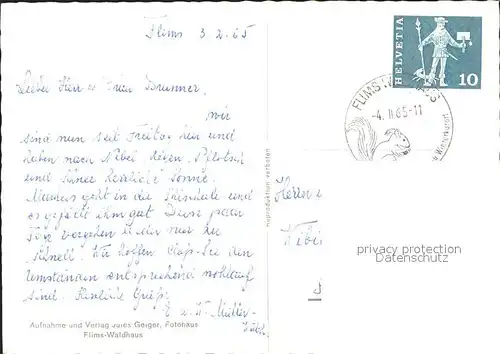 Flims 3.2.65
Lieber Herr u Frau Brunner,
wir
sind nun seit Freitag hier und
haben nach Nebel Regen Pflotsch
und Schnee herrliche Sonne.
geht in die Skischule und
es gefällt ihm gut. Diese paar
Tage vergehen uns nur zu
schnell. Wir hoffen dass Sie den
Umständen entsprechend wohlauf
sind. Herzliche Grüsse
E u. W. Müller
Aufnahme und Verlag Jules Geiger, Fotohaus
Flims-Waldhaus
Reproduktion verboten
HELVETIA
10
FLIMS
-4. II. 65-11
Herrn
privacy protection
Datenschutz